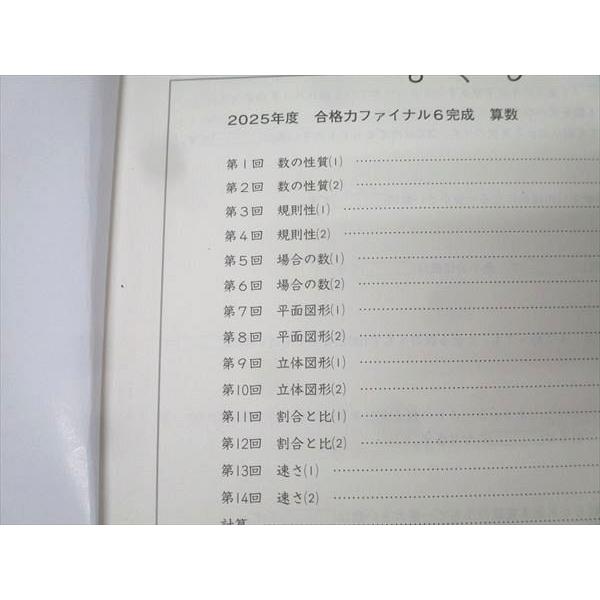 2025年度 合格力ファイナル6完成 算数
第1回 数の性質(1) ……………………
第2回 数の性質(2) ……………………
第3回 規則性(1) ……………………
第4回 規則性(2) ……………………
第5回 場合の数(1) ……………………
第6回 場合の数(2) ……………………
第7回 平面図形(1) ……………………
第8回 平面図形(2) ……………………
第9回 立体図形(1) ……………………
第10回 立体図形(2) ……………………
第11回 割合と比(1) ……………………
第12回 割合と比(2) ……………………
第13回 速さ(1) ……………………
第14回 速さ(2) ……………………
計算 ……………………